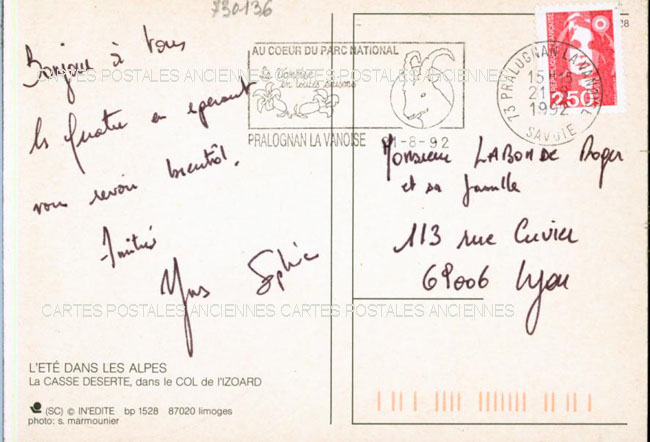 730136
Bonjour à vous
les quatre en espérant
vous revoir bientôt.
Amitié
Yves Sophie
AU COEUR DU PARC NATIONAL
La Vanoise
en toutes saisons
PRALOGNAN LA VANOISE
21-8-92
73 PRALOGNAN LA VANOISE 73
15H
21-8
1992
SAVOIE
2,50
Monsieur LABONDE Roger
et sa famille
113 rue Cuvier
69006 Lyon
CARTES POSTALES ANCIENNES CARTES POSTALES ANCIENNES
CARTES POSTALES ANCIENNES CARTES POSTALES ANCIENNES
L'ETÉ DANS LES ALPES
La CASSE DESERTE, dans le COL de l'IZOARD
(SC) © IN'EDITE bp 1528 87020 limoges
photo: s. marmounier